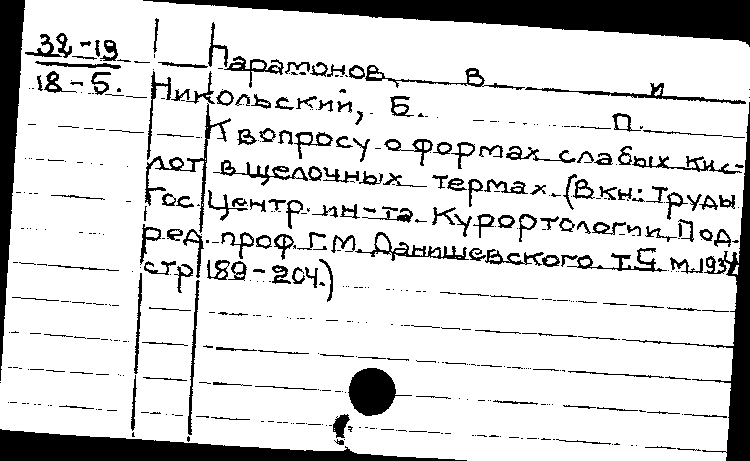 32-19 Парамонов, В. и
18-5. Никольский, Б. П.
К вопросу о формах слабых кис-
лот в щелочных термах. (В кн.: Труды
Гос. Центр. ин-та Курортологии, Под.
ред. проф. Г.М. Данишевского. т. 5. м. 1934
стр 189-204.)